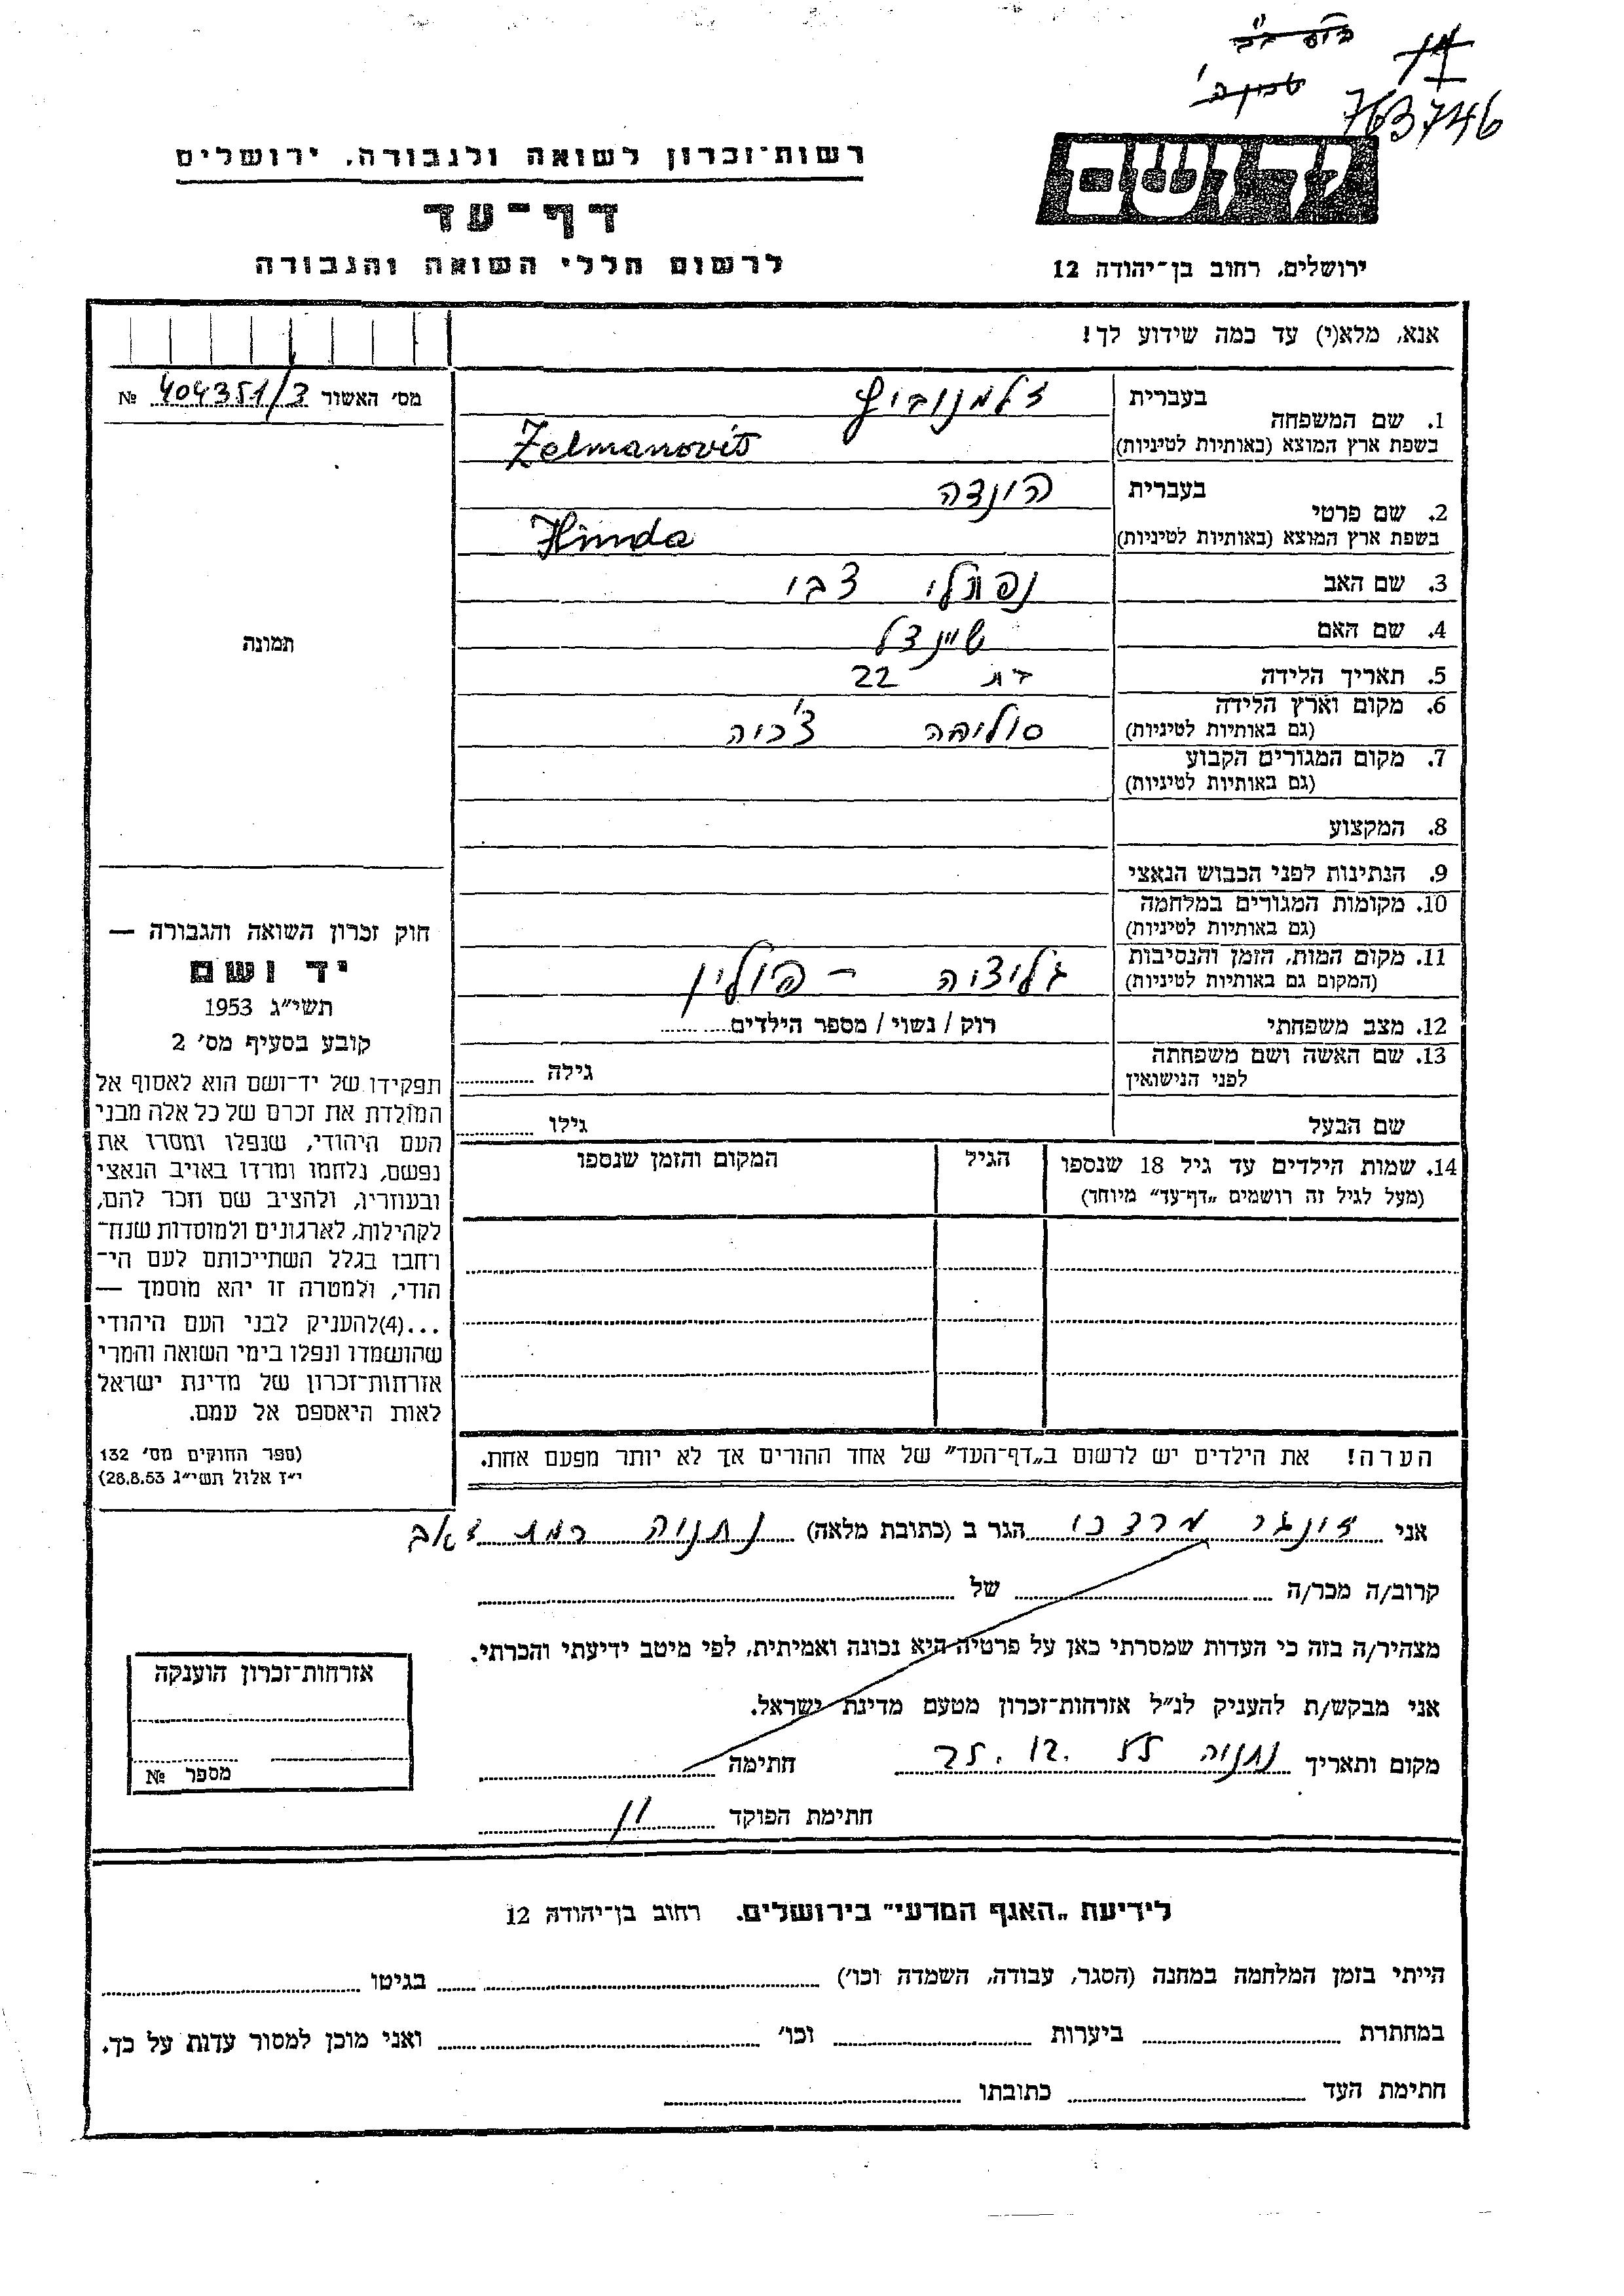 763746
רשות־זכרון לשואה ולגבורה, ירושלים
דף־עד
לרשום חללי השואה והגבורה
יד ושם
ירושלים, רחוב בן־יהודה 12
אנא, מלא(י) עד כמה שידוע לך!
מס׳ האשור 404351/3 №
1. שם המשפחה
בעברית זלמנוביץ
בשפת ארץ המוצא (באותיות לטיניות) Zelmanovits
2. שם פרטי
בעברית הונדה
בשפת ארץ המוצא (באותיות לטיניות) Hinda
3. שם האב נפתלי צבי
4. שם האם שיינדל
5. תאריך הלידה בת 22
6. מקום וארץ הלידה
(גם באותיות לטיניות) צ׳כיה
7. מקום המגורים הקבוע
(גם באותיות לטיניות)
8. המקצוע
9. הנתינות לפני הכבוש הנאצי
10. מקומות המגורים במלחמה
(גם באותיות לטיניות)
11. מקום המות, הזמן והנסיבות
(המקום גם באותיות לטיניות) גליציה - פולין
12. מצב משפחתי רוק / נשוי / מספר הילדים
13. שם האשה ושם משפחתה
לפני הנישואין גילה
שם הבעל גילו
14. שמות הילדים עד גיל 18 שנספו
(מעל לגיל זה רושמים „דף־עד” מיוחד)
הגיל
המקום והזמן שנספו
הערה! את הילדים יש לרשום ב„דף־העד” של אחד ההורים אך לא יותר מפעם אחת.
תמונה
חוק זכרון השואה והגבורה —
יד ושם
תשי״ג 1953
קובע בסעיף מס׳ 2
תפקידו של יד־ושם הוא לאסוף אל
המולדת את זכרם של כל אלה מבני
העם היהודי, שנפלו ומסרו את
נפשם, נלחמו ומרדו באויב הנאצי
ובעוזריו, ולהציב שם וזכר להם,
לקהילות, לארגונים ולמוסדות שנח־
רחבו בגלל השתייכותם לעם הי־
הודי, ולמטרה זו יהא מוסמך —
...(4)להעניק לבני העם היהודי
שהושמדו ונפלו בימי השואה והמרי
אזרחות־זכרון של מדינת ישראל
לאות היאספם אל עמם.
(ספר החוקים מס׳ 132
י״ז אלול תשי״ג 28.8.53)
אני זונגר מרדכי הגר ב (כתובת מלאה) נתניה רמת
קרוב/ה מכר/ה של
מצהיר/ה בזה כי העדות שמסרתי כאן על פרטיה היא נכונה ואמיתית, לפי מיטב ידיעתי והכרתי.
אני מבקש/ת להעניק לנ״ל אזרחות־זכרון מטעם מדינת ישראל.
מקום ותאריך נתניה 25.12.55 חתימה
חתימת הפוקד
אזרחות־זכרון הוענקה
מספר №
לידיעת „האגף המדעי” בירושלים. רחוב בן־יהודה 12
הייתי בזמן המלחמה במחנה (הסגר, עבודה, השמדה וכו׳) בגיטו
במחתרת ביערות וכו׳ ואני מוכן למסור עדות על כך.
חתימת העד כתובתו